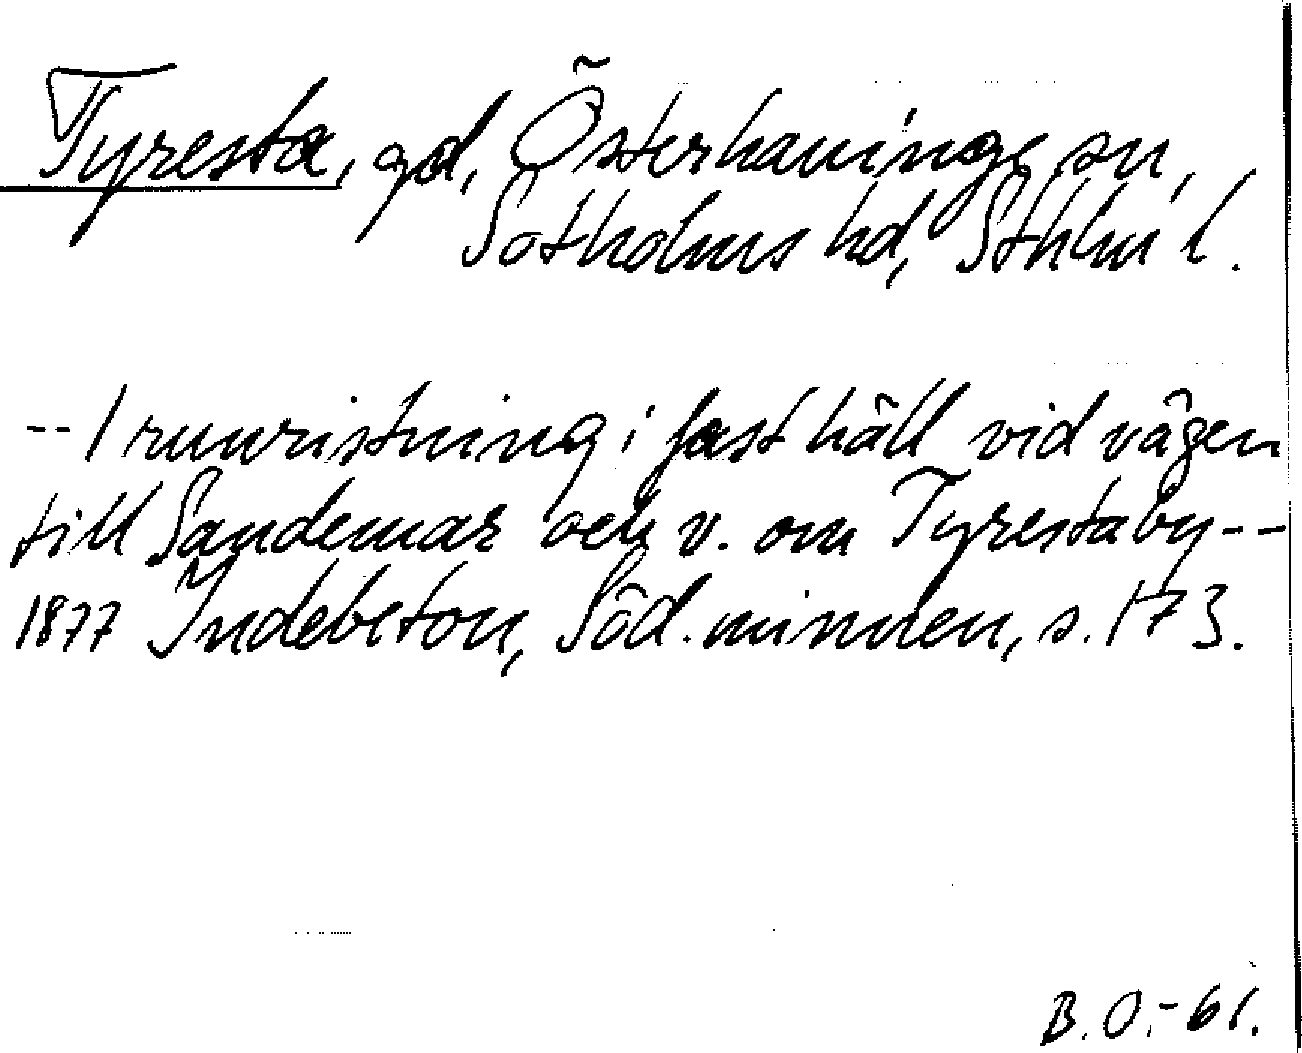 Tyresta, gd, Österhaninge sn,
Sotholms hd, Sthlm l.
-- 1 runristning i fast häll vid vägen
till Sandemar och v. om Tyrestaby --
1877 Indebetou, Söd. minnen, s. 173.
B. O. - 61.